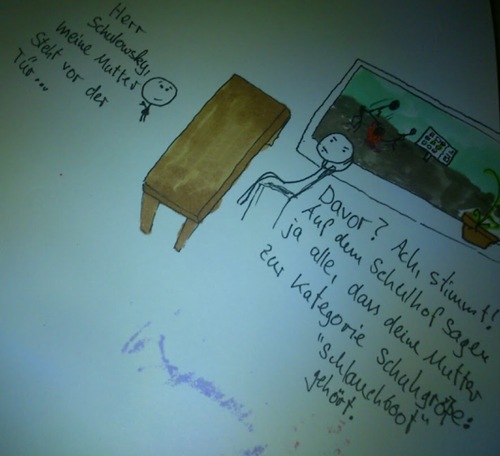 Herr
Schulowsky,
meine Mutter
steht vor der
Tür...
Davor? Ach, stimmt!
Auf dem Schulhof sagen
ja alle, dass deine Mutter
zur Kategorie Schuhgröße:
"Schlauchboot"
gehört.